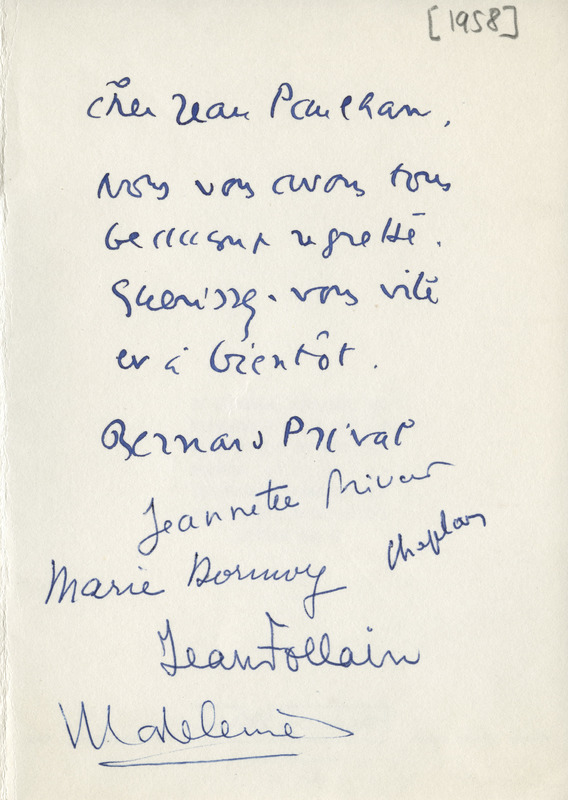 [1958]
Cher Jean Paulhan,
Nous vous avons tous
beaucoup regretté.
Guérissez-vous vite
et à bientôt.
Bernard Privat
Jeannette Privat
Chaplain
Marie Dormoy
Jean Follain
Madeleine